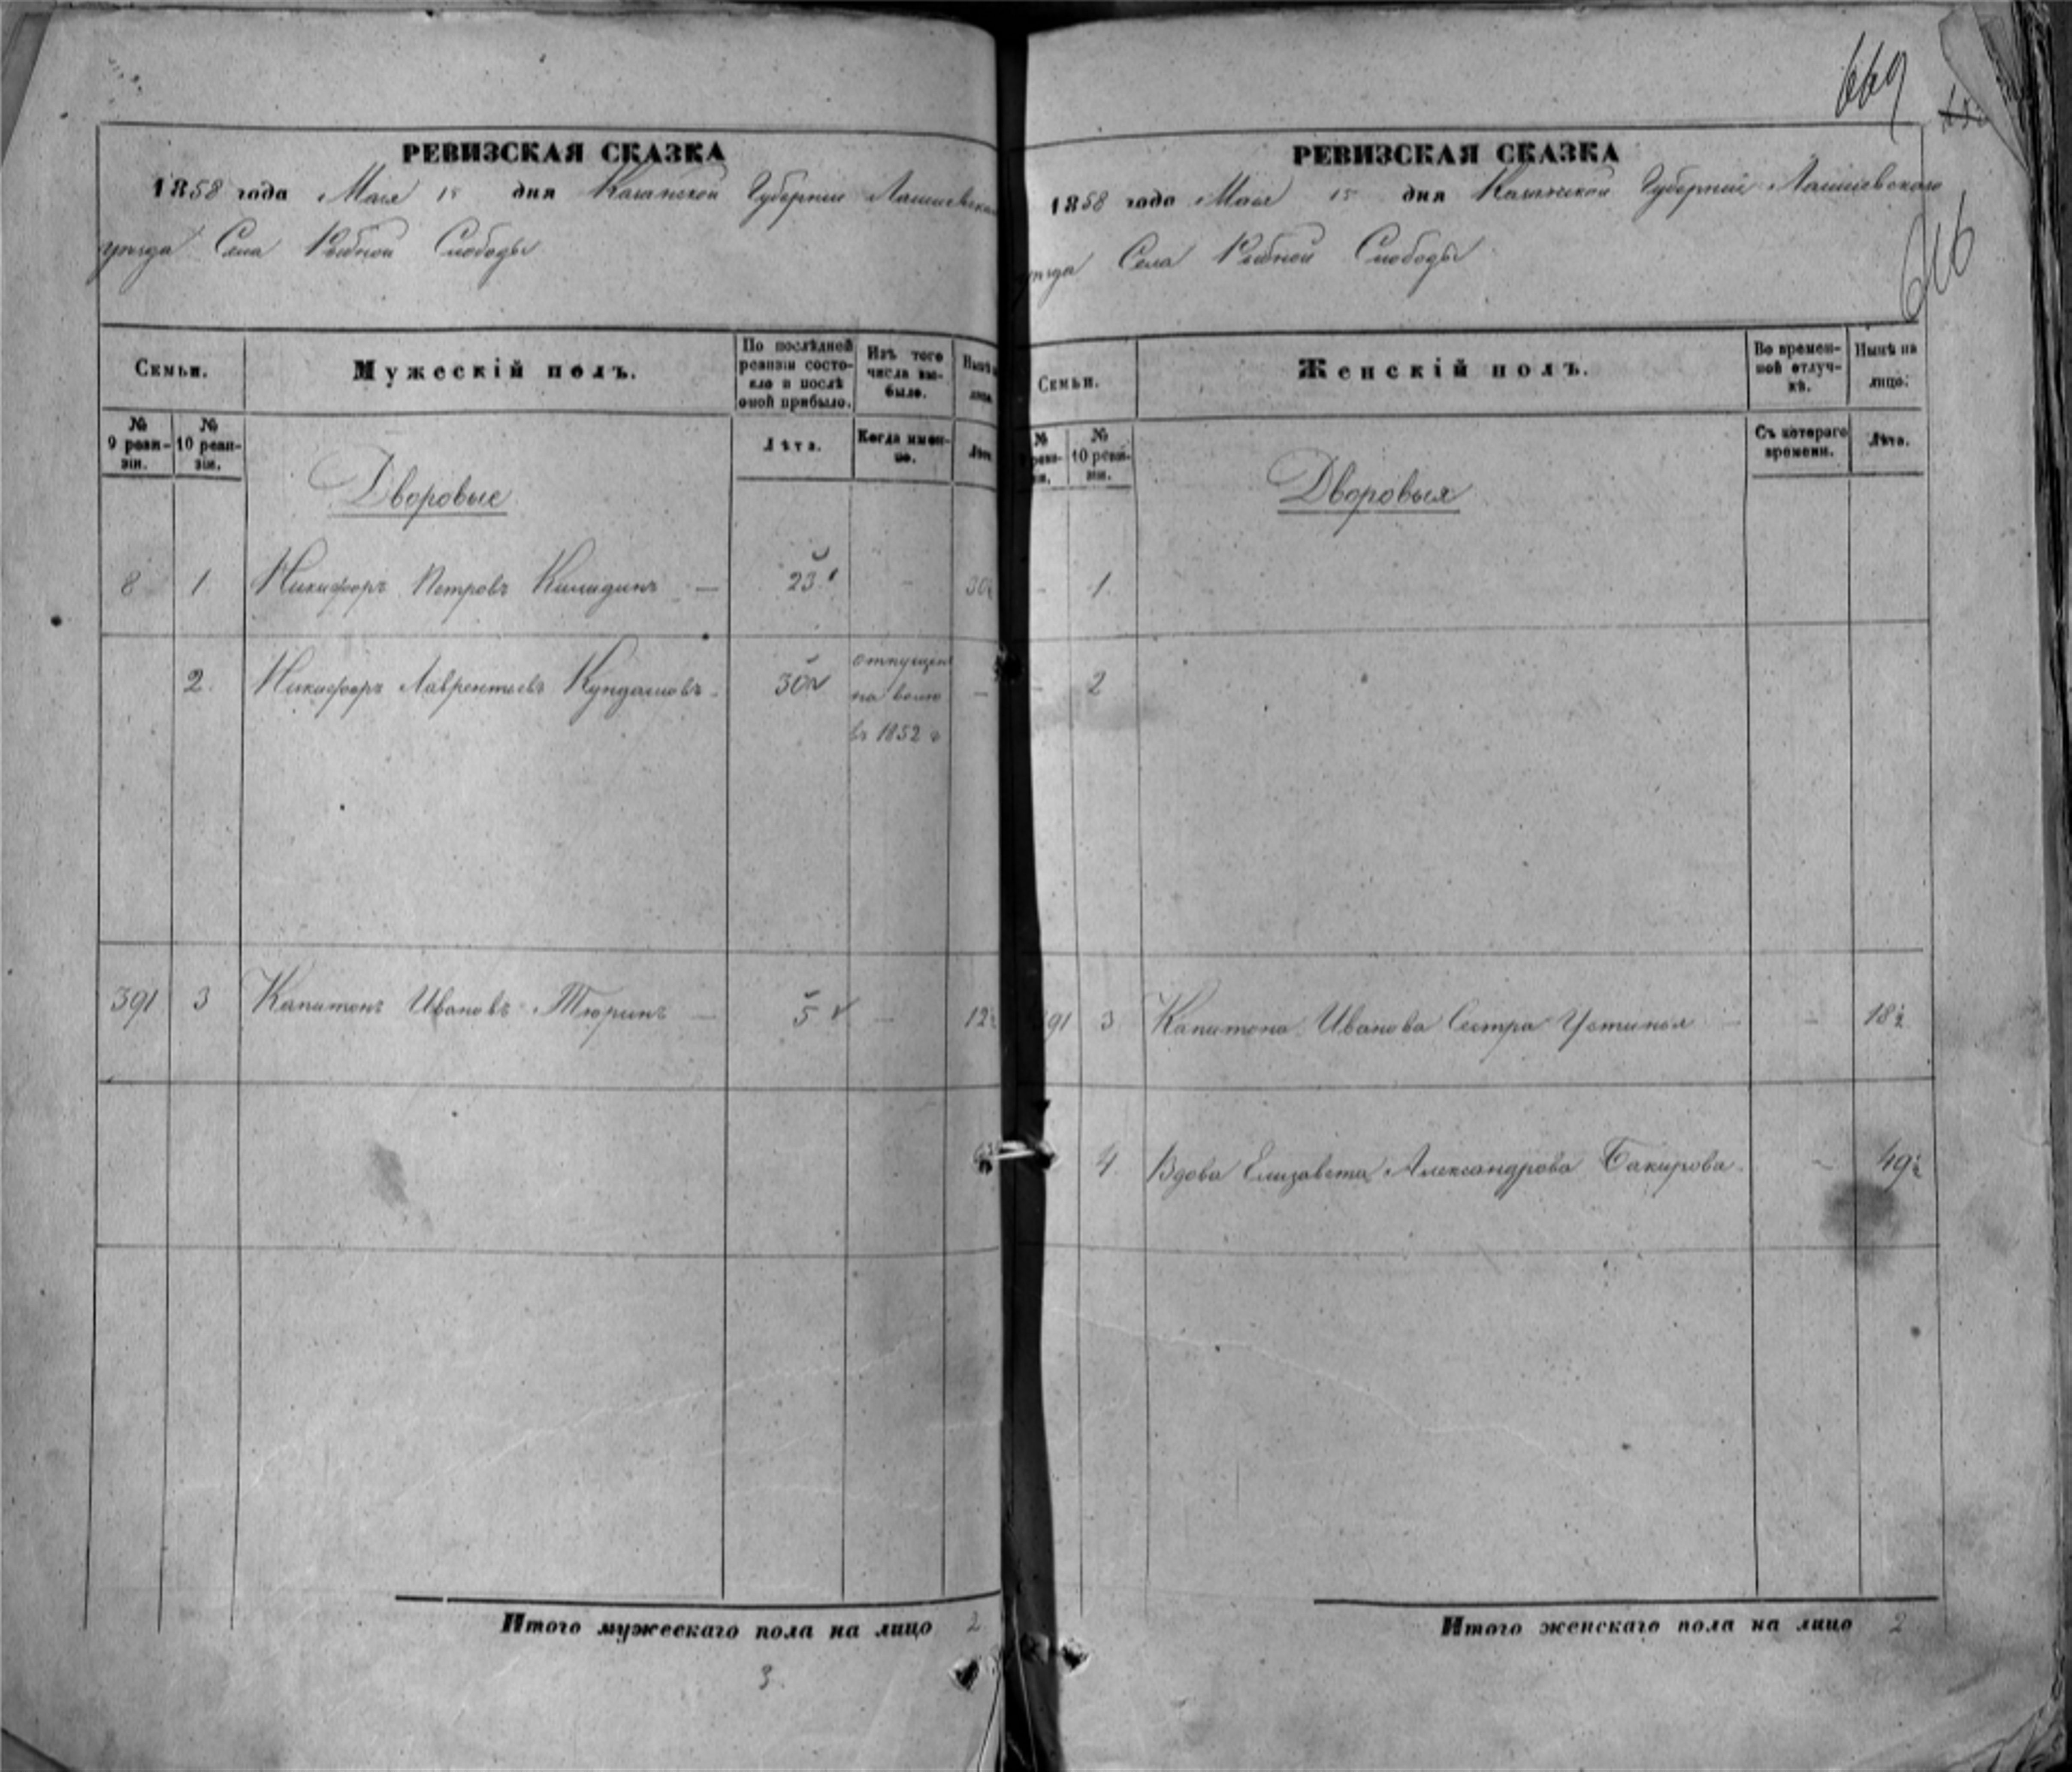 669
616
РЕВИЗСКАЯ СКАЗКА
1858 года Мая 15 дня Казанской Губернии Лаишевскаго
уѣзда Села Рыбной Слободы
Семьи.
Мужескій полъ.
По послѣдней ревизіи состояло и послѣ оной прибыло.
Изъ того числа выбыло.
Нынѣ на лицо.
№ 9 ревизіи.
№ 10 ревизіи.
Лѣта.
Когда именно.
Лѣта.
Дворовые
8 1. Никифоръ Петровъ 23 - 30½
2. Никифоръ Лаврентьевъ Кундашовъ 30 отпущенъ
на волю
въ 1852 г
-
391 3 Капитонъ Ивановъ Тюринъ — 5 — 12½
Итого мужескаго пола на лицо 2
3.
РЕВИЗСКАЯ СКАЗКА
1858 года Мая 15 дня Казанской Губернии Лаишевскаго
уѣзда Села Рыбной Слободы
Семьи.
Женскій полъ.
Во временной отлучкѣ.
Нынѣ на лицо.
№ 10 ревизіи.
Съ котораго времени.
Лѣта.
Дворовыя
- 1.
- 2
391 3 Капитона Иванова Сестра Устинья — 18½
4. Вдова Елизавета Александрова Бакирова - 49½
Итого женскаго пола на лицо 2